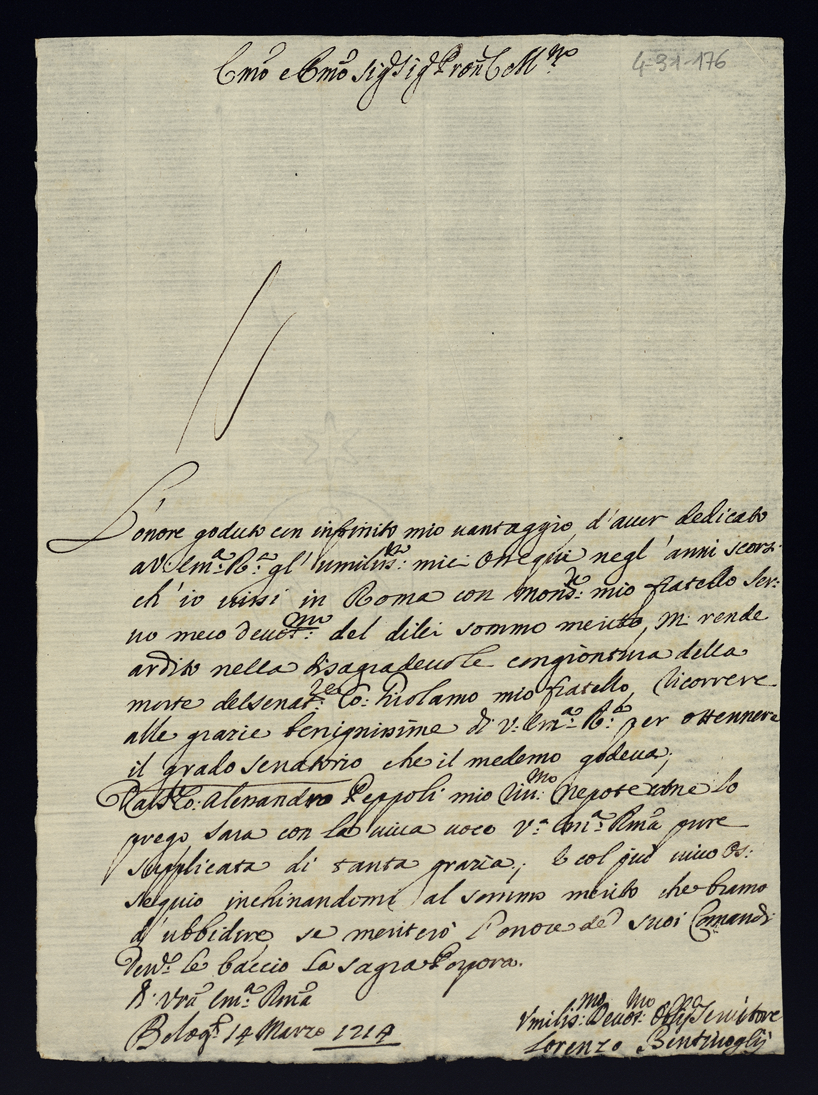 Emõ e Rmõ Sig. Sig. Prõn Col.mo
4-31-176
L'onore goduto con infinito mio vantaggio, d'aver dedicato
a V. Em.a R.a gl'umilis.mi miei ossequi negl'anni scorsi
ch'io vissi in Roma con Mons.re mio fratello ser:
vo meco devot.mo: del di lei sommo merito, mi rende
ardito nella disagradevole congiontura della
morte del Senat.re Co: Girolamo mio fratello, ricorrere
alle grazie benignissime di V: Em.a R.a per ottennere
il grado senatorio che il medemo godeva;
Dal Co: Alessandro Peppoli mio nepote come lo
prego sara con la viva voce V.a Em.a Rmã pure
supplicata di tanta grazia; e col più vivo os:
sequio inchinandomi al sommo merito che bramo
d'ubbidire, se meriterò l'onore de suoi Comandi
le baccio la sagra Porpora.
D. Vrã Em.a Rmã
Bolog.a 14 Marzo 1714
Vmilis:mo Devot:mo Obl.mo Servitore
Lorenzo Bentivoglij